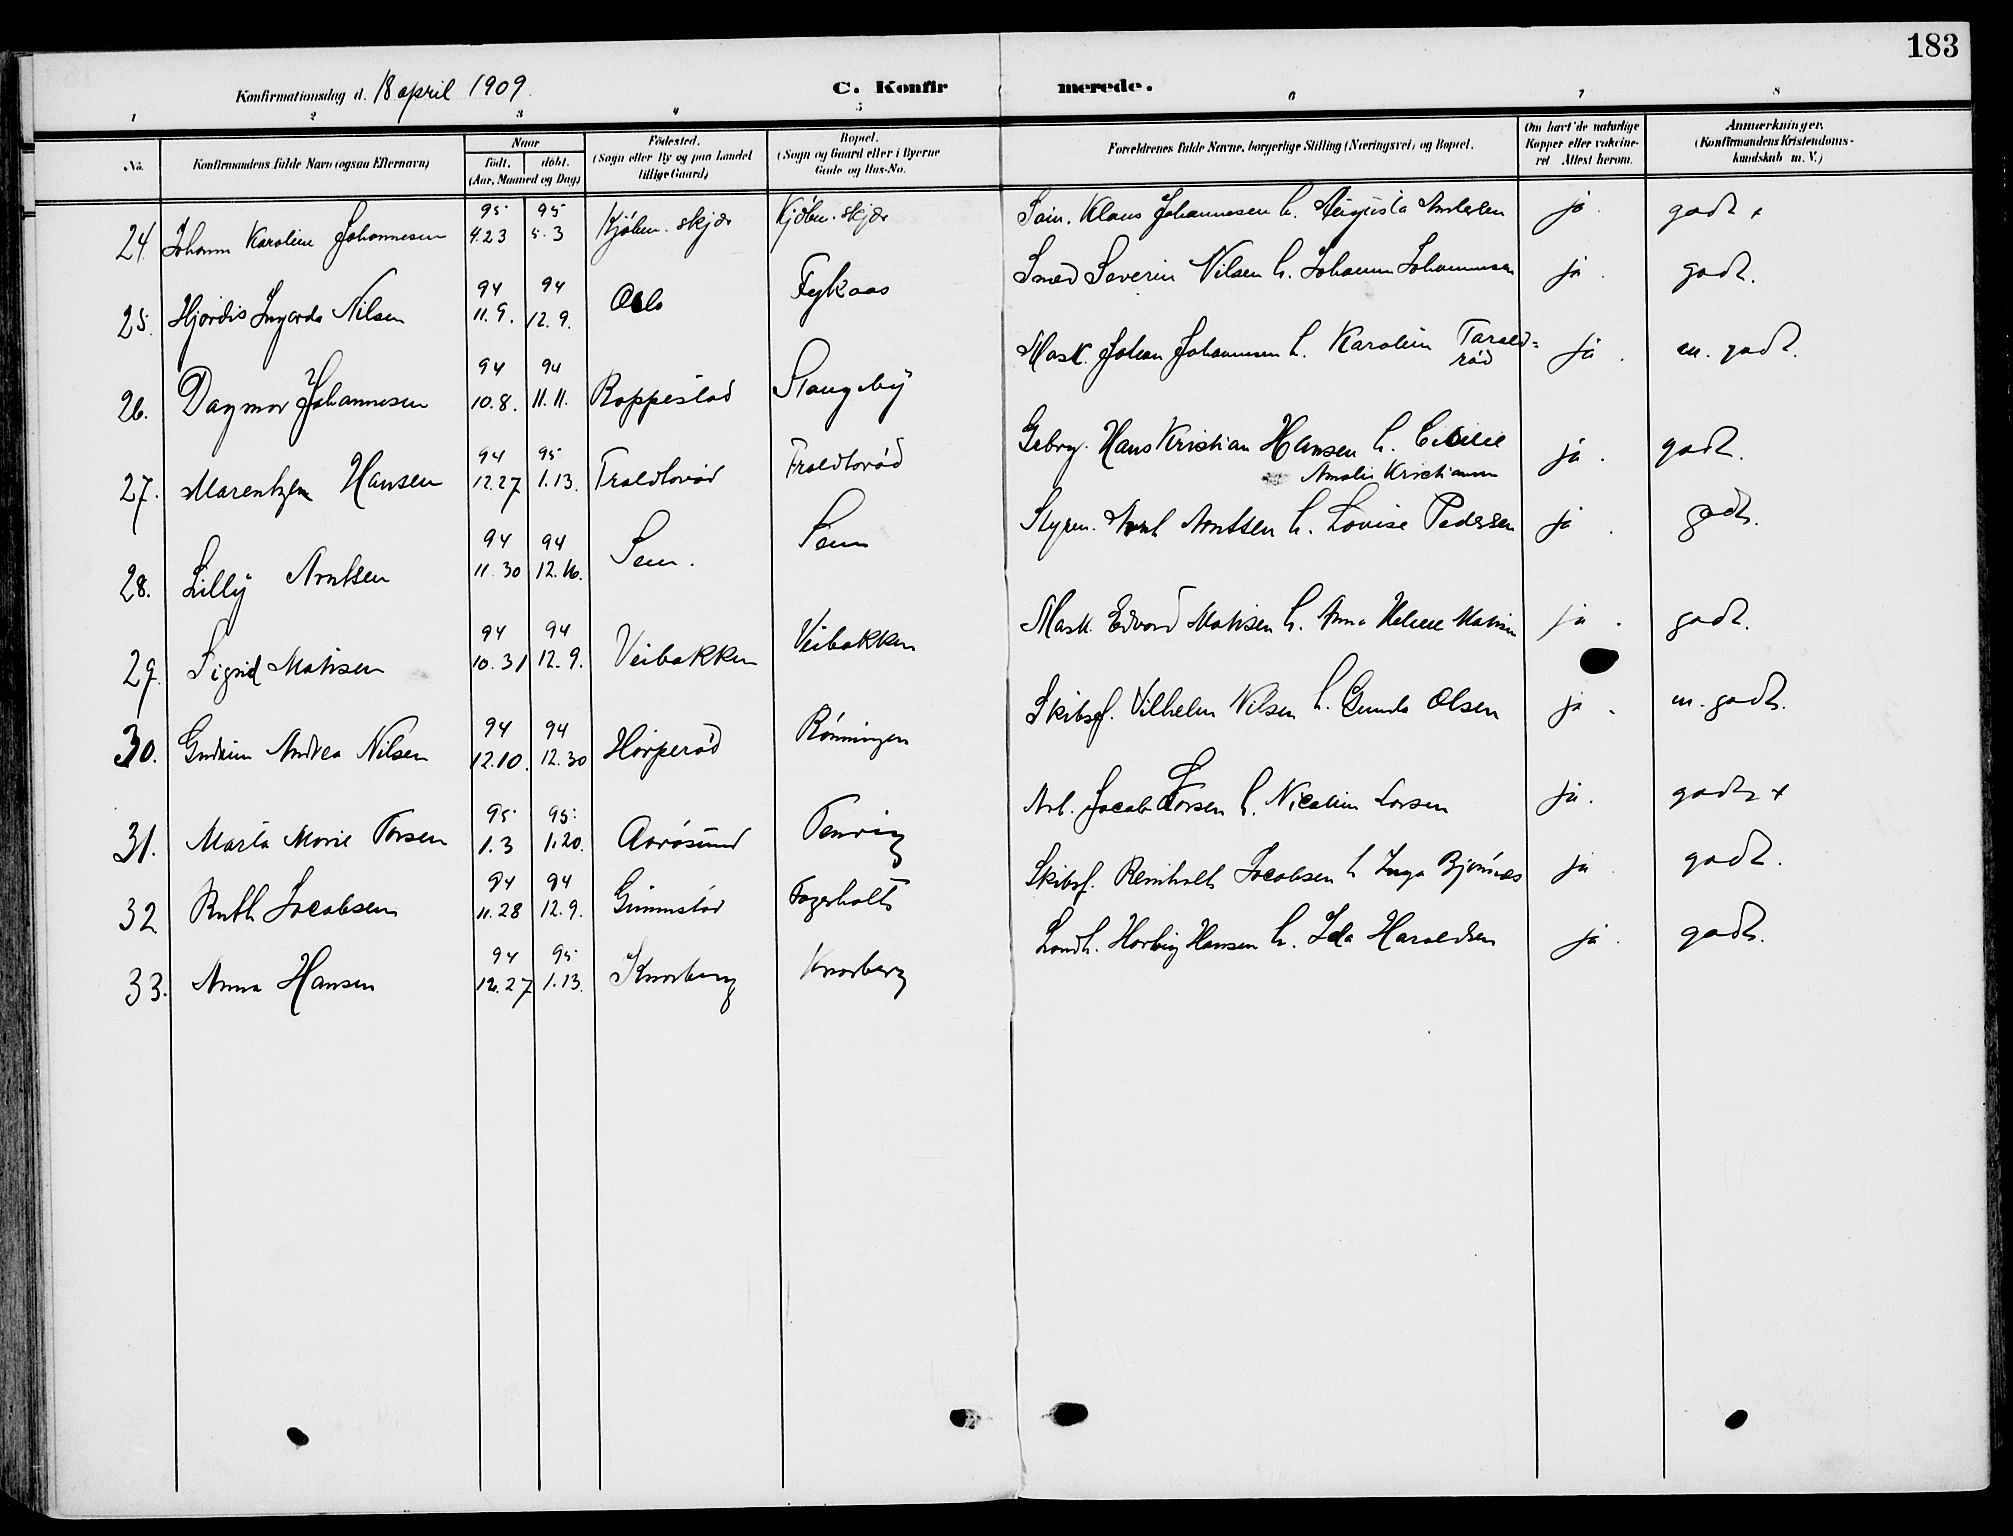 183
Konfirmationsdag d. 18 april 1909. C. Konfirmerede.
1 2 3 4 5 6 7 8
No. Konfirmandens fulde Navn (ogsaa Efternavn) Naar født, døbt. (Aar, Maaned og Dag) Fødested. (Sogn eller By og paa Landet tillige Gaard) Bopæl. (Sogn og Gaard eller i Byerne Gade og Hus-No. Forældrenes fulde Navne, borgerlige Stilling (Næringsvei) og Bopæl. Om havt de naturlige Kopper eller vakcineret Attest herom. Anmærkninger. (Konfirmandens Kristendomskundskab m. V.)
24. Johanne Karoline Johannesen 95 4.23 95 5.3 Kjøben.skjær Kjøben.skjær Klaus Johannesen h. Augusta Andersen ja. godt +
25. Hjørdis Ingarda Nilsen 94 11.9. 94 12.9. Oslo Fykaas Smed Severin Nilsen h. Johanne Johannesen ja. godt.
26. Dagmar Johannesen 94 10.8. 94 11.11. Roppestad Stangeby Mask. Johan Johannesen h. Karoline Tarald=
rød ja. m. godt.
27. Marentze Hansen 94 12.27 95 1.13. Traldlorød Traldlorød Gebrg. Hans Kristian Hansen h. Cicilie
Amalie Kristiansen ja. godt.
28. Lilly Arntsen 94 11.30 94 12.16. Sem. Sem Styrm. Arnt Arntsen h. Lovise Pedersen ja. godt.
29. Sigrid Matisen 94 10.31 94 12.9. Veibakken Veibakken Mask. Edvard Matisen h. Anna Helene Matisen ja. godt.
30. Gudrun Andrea Nilsen 94 12.10. 94 12.30 Horperød Rønningen Skibsf. Vilhelm Nilsen h. Gunda Olsen ja. m. godt.
31. Marta Marie Torsen 95 1.3 95 1.20. Aarøsund Tenvig Arb. Jacob Larsen h. Nicoline Larsen ja. godt +
32 Ruth Jacobsen 94 11.28 94 12.9. Grimestad Fagerholt Skibsf. Reinholt Jacobsen h Inga Bjønnes ja godt.
33. Anna Hansen 94 12.27 95 1.13. Knarberg Knarberg Landh. Hans Hansen h. Ida Haraldsen ja. godt.